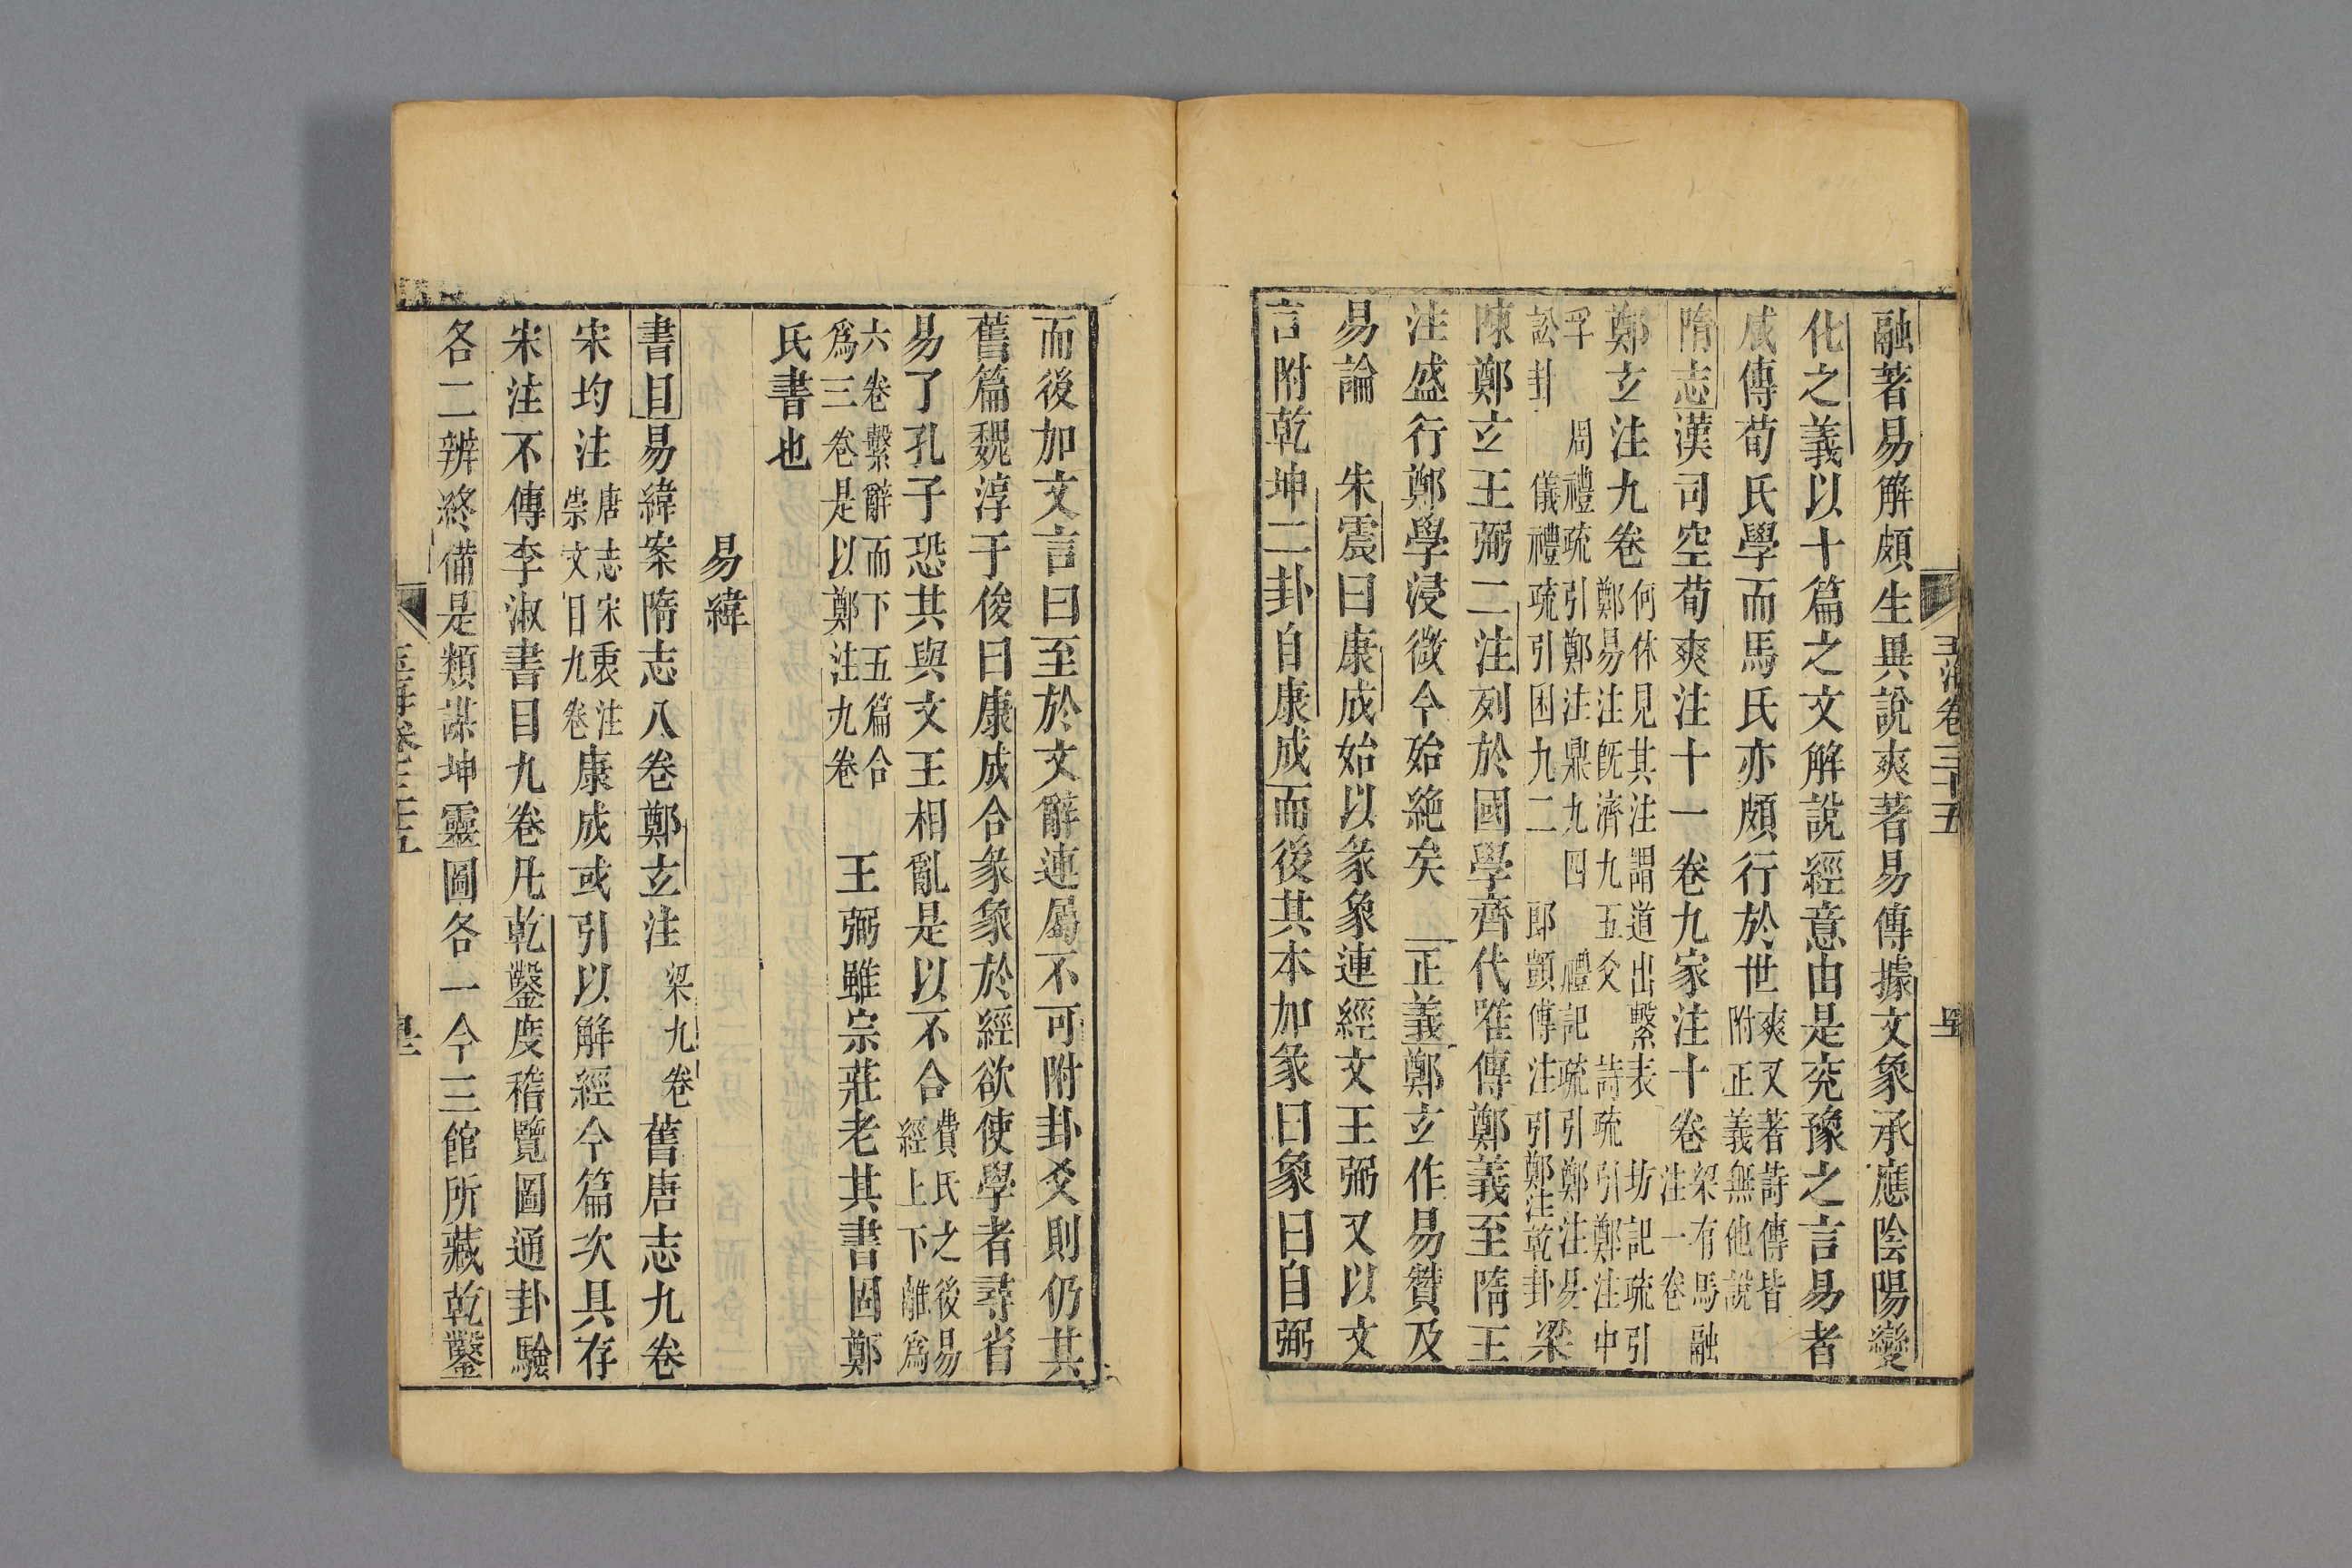 融著易解頗生異說爽著易傳據文象承應陰陽變
化之義以十篇之文解說經意由是兖豫之言易者
咸傳荀氏學而馬氏亦頗行於世爽又著詩傳皆附正義無他說
隋志漢司空荀爽注十一卷九家注十卷梁有馬融注一卷
鄭玄注九卷何休見其注謂道出繫表 坊記疏引鄭易注既濟九五爻 詩疏引鄭注中
孚 周禮疏引鄭注鼎九四 禮記疏引鄭注易訟卦 儀禮疏引困九二 郎顗傳注引鄭注乾卦梁
陳鄭玄王弼二注列於國學齊代唯傳鄭義至隋王
注盛行鄭學浸微今殆絶矣 正義鄭玄作易贊及
易論 朱震曰康成始以彖象連經文王弼又以文
言附乾坤二卦自康成而後其本加彖曰象曰自弼
玉海卷三十五
而後加文言曰至於文辭連屬不可附卦爻則仍其
舊篇魏淳于俊曰康成合彖象於經欲使學者尋省
易了孔子恐其與文王相亂是以不合費氏之後易經上下離爲
六卷繫辭而下五篇合爲三卷是以鄭注九卷 王弼雖宗莊老其書固鄭
氏書也
易緯
書目易緯案隋志八卷鄭玄注梁九卷舊唐志九卷
宋均注唐志宋衷注崇文目九卷康成或引以解經今篇次具存
宋注不傳李淑書目九卷凡乾鑿度稽覽圖通卦驗
各二辨終備是類謀坤靈圖各一今三館所藏乾鑿